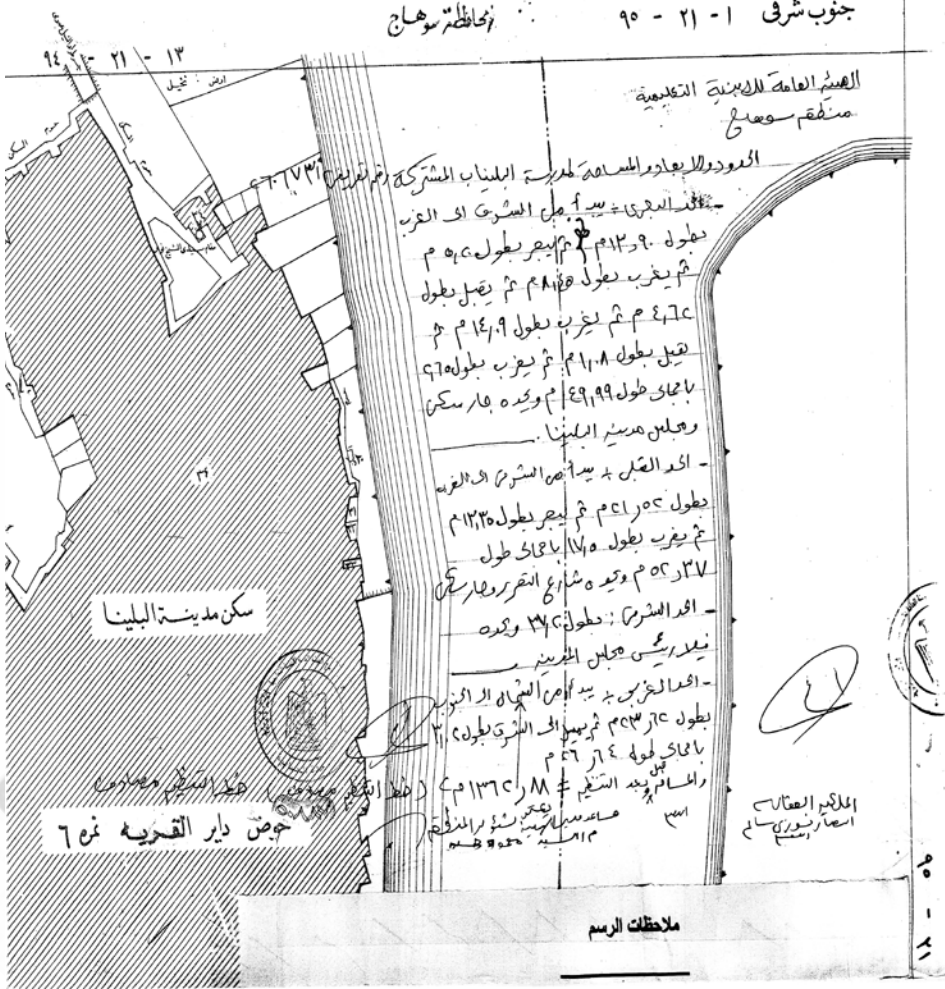 جنوب شرقى ١ - ٢١ - ٩٥
محافظة سوهاج
١٣ - ٢١ - ٩٤
ارض نخيل
الهيئة العامة للابنية التعليمية
منطقة سوهاج
الحدود والابعاد والمساحة لمدرسة البلينا المشتركة رقم تعريفى
- الحد البحرى : يبدأ من الشرق الى الغرب
بطول ١٢,٩٠ م ثم يبحر بطول ٥,٢ م
ثم يغرب بطول ٨,٤٥ م ثم يقبل بطول
٤,٦٢ م ثم يغرب بطول ١٤,٠٩ م ثم
يقبل بطول ١,٠٨ م ثم يغرب بطول ٢,٦٥
باجمالى طول ٤٩,٩٩ م ويحده جار سكن
ومجلس مدينة البلينا .
- الحد القبلى : يبدأ من الشرق الى الغرب
بطول ٢١,٥٢ م ثم يبحر بطول ١٣,٣٥ م
ثم يغرب بطول ١٧,٥ باجمالى طول
٥٢,٣٧ م ويحده شارع التحرير وجار سكن
- الحد الشرقى : بطول ٣٧,٢ ويحده
فيلا رئيس مجلس المدينة
- الحد الغربى : يبدأ من الشمال الى الجنوب
بطول ٢٣,٦٢ م ثم يميل الى الشرق بطول ٣,٢
باجمالى طول ٢٦,٦٤ م
والمسافة بعد التنظيم = ١٣٦٢,٨٨ م٢ (خط التنظيم مصادف) خط التنظيم مصادف
سكن مدينة البلينا
حوض داير القرية نمرة ٦
الملكية العقارية
ملاحظات الرسم
٩٥ - ٢١